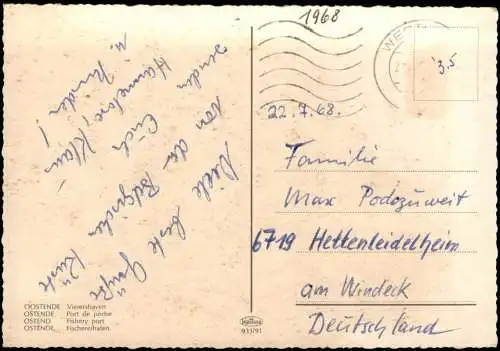 1968
WES
3,5
22.7.68.
Viele beste Grüße
von der Belgischen Küste
senden Euch
Hannelore, Klaus
u. Kinder!
Familie
Max Podozuweit
6719 Hettenleidelheim
am Windeck
Deutschland
OOSTENDE Vissershaven
OSTENDE Port de pêche
OSTEND Fishery port
OSTENDE Fischereihafen
933/91